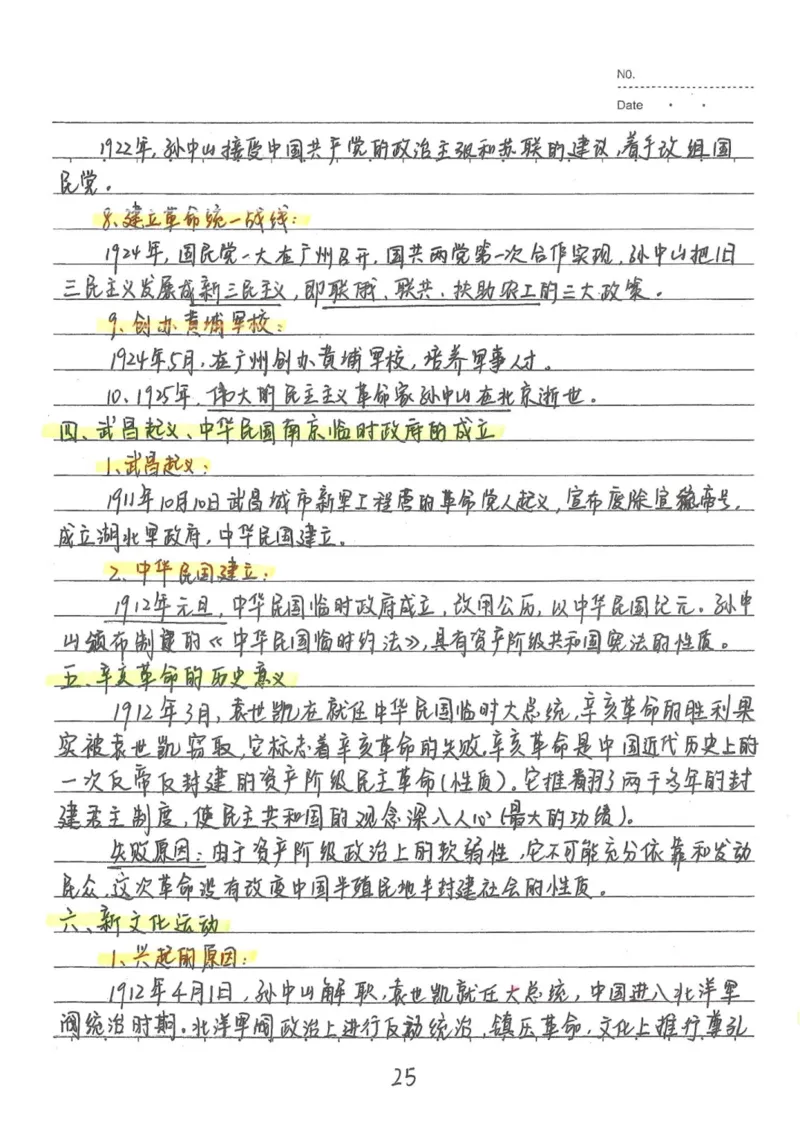 NO.
Date
1922年,孙中山接受中国共产党的政治主张和苏联的建议,着手改组国
民党。
8、建立革命统一战线:
1924年,国民党一大在广州召开,国共两党第一次合作实现,孙中山把旧
三民主义发展成新三民主义,即联俄、联共、扶助农工的三大政策。
9、创办黄埔军校:
1924年5月,在广州创办黄埔军校,培养军事人才。
10、1925年,伟大的民主主义革命家孙中山在北京逝世。
四、武昌起义、中华民国南京临时政府的成立
1、武昌起义:
1911年10月10日武昌城市新军工程营的革命党人起义,宣布废除宣统帝号,
成立湖北军政府,中华民国建立。
2、中华民国建立:
1912年元旦,中华民国临时政府成立,改用公历,以中华民国纪元。孙中
山颁布制定的《中华民国临时约法》,具有资产阶级共和国宪法的性质。
五、辛亥革命的历史意义
1912年3月,袁世凯在就任中华民国临时大总统,辛亥革命的胜利果
实被袁世凯窃取,它标志着辛亥革命的失败。辛亥革命是中国近代历史上的
一次反帝反封建的资产阶级民主革命(性质)。它推翻了两千多年的封
建君主制度,使民主共和国的观念深入人心(最大的功绩)。
失败原因:由于资产阶级政治上的软弱性,它不可能充分依靠和发动
民众,这次革命没有改变中国半殖民地半封建社会的性质。
六、新文化运动
1、兴起的原因:
1912年4月1日,孙中山解职,袁世凯就任大总统,中国进入北洋军
阀统治时期。北洋军阀政治上进行反动统治,镇压革命,文化上推行尊孔
25